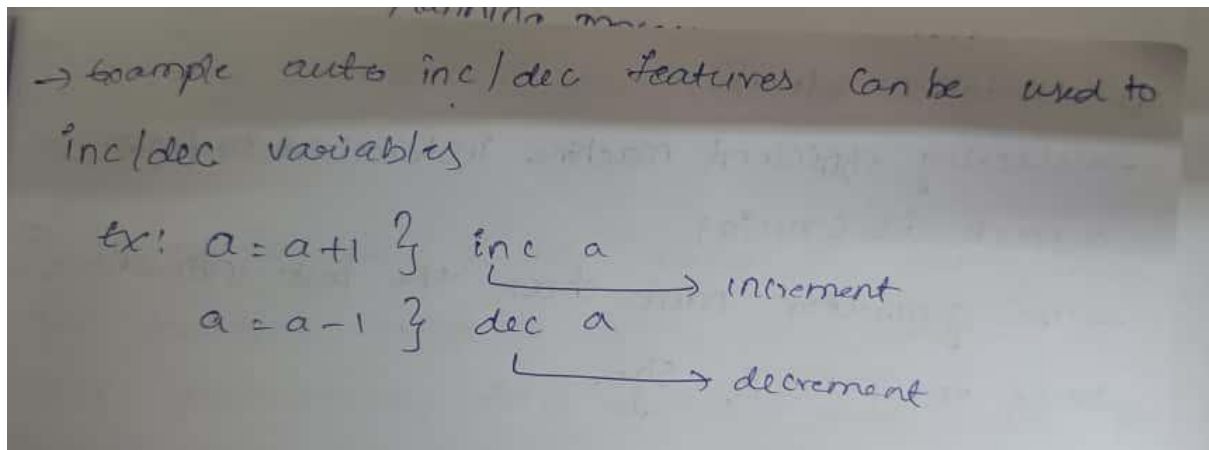 → Example auto inc/dec features can be used to
inc/dec variables
Ex: a = a+1 } inc a
→ increment
a = a-1 } dec a
→ decrement